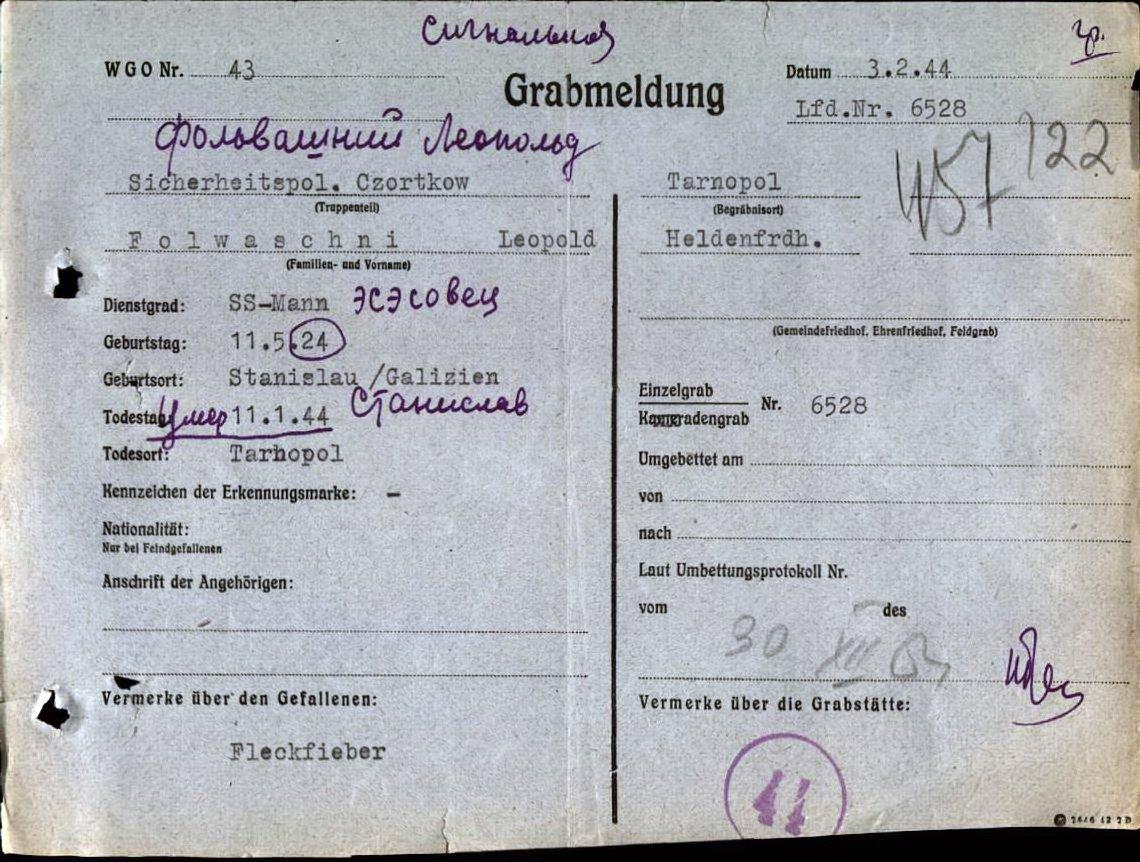 Сигнальная
гр.
WGO Nr. 43
Grabmeldung
Datum 3.2.44
Lfd.Nr. 6528
Фольвашний Леопольд
457 122
Sicherheitspol. Czortkow
(Truppenteil)
Folwaschni Leopold
(Familien- und Vorname)
Dienstgrad: SS-Mann эсэсовец
Geburtstag: 11.5.24
Geburtsort: Stanislau /Galizien
Станислав
Todestag: умер 11.1.44
Todesort: Tarnopol
Kennzeichen der Erkennungsmarke: —
Nationalität:
Nur bei Feindgefallenen
Anschrift der Angehörigen:
Vermerke über den Gefallenen:
Fleckfieber
Tarnopol
(Begräbnisort)
Heldenfrdh.
(Gemeindefriedhof, Ehrenfriedhof, Feldgrab)
Einzelgrab
Kameradengrab Nr. 6528
Umgebettet am
von
nach
Laut Umbettungsprotokoll Nr.
vom des
30 XII
Vermerke über die Grabstätte:
44